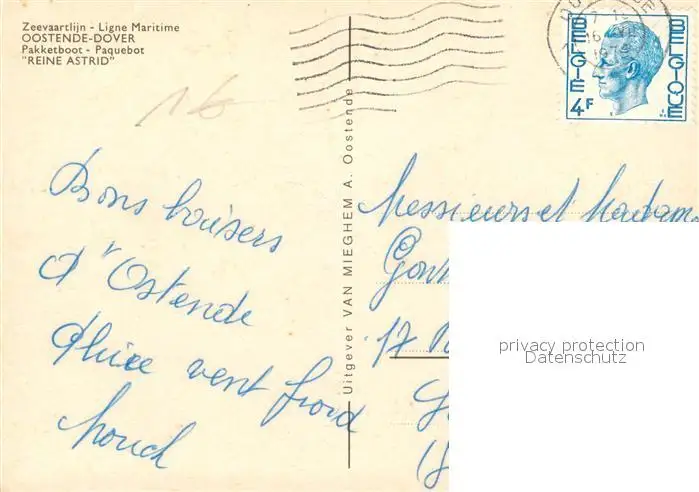 Zeevaartlijn - Ligne Maritime
OOSTENDE-DOVER
Pakketboot - Paquebot
"REINE ASTRID"
16
Bons baisers
d'Ostende
Pluie vent froid
Uitgever VAN MIEGHEM A. Oostende
BELGIE
BELGIQUE
4F
Messieurs et Madam
17
privacy protection
Datenschutz